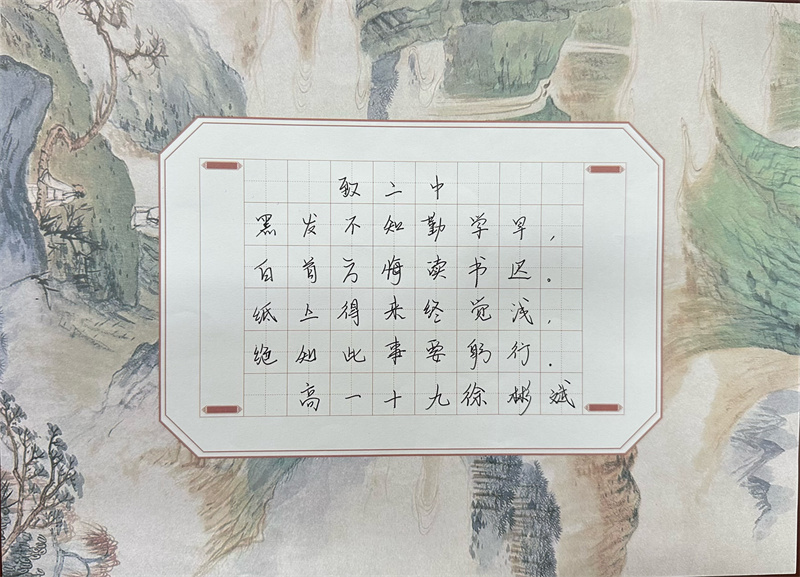 致二中
黑发不知勤学早，
白首方悔读书迟。
纸上得来终觉浅，
绝知此事要躬行．
高一十九徐彬斌